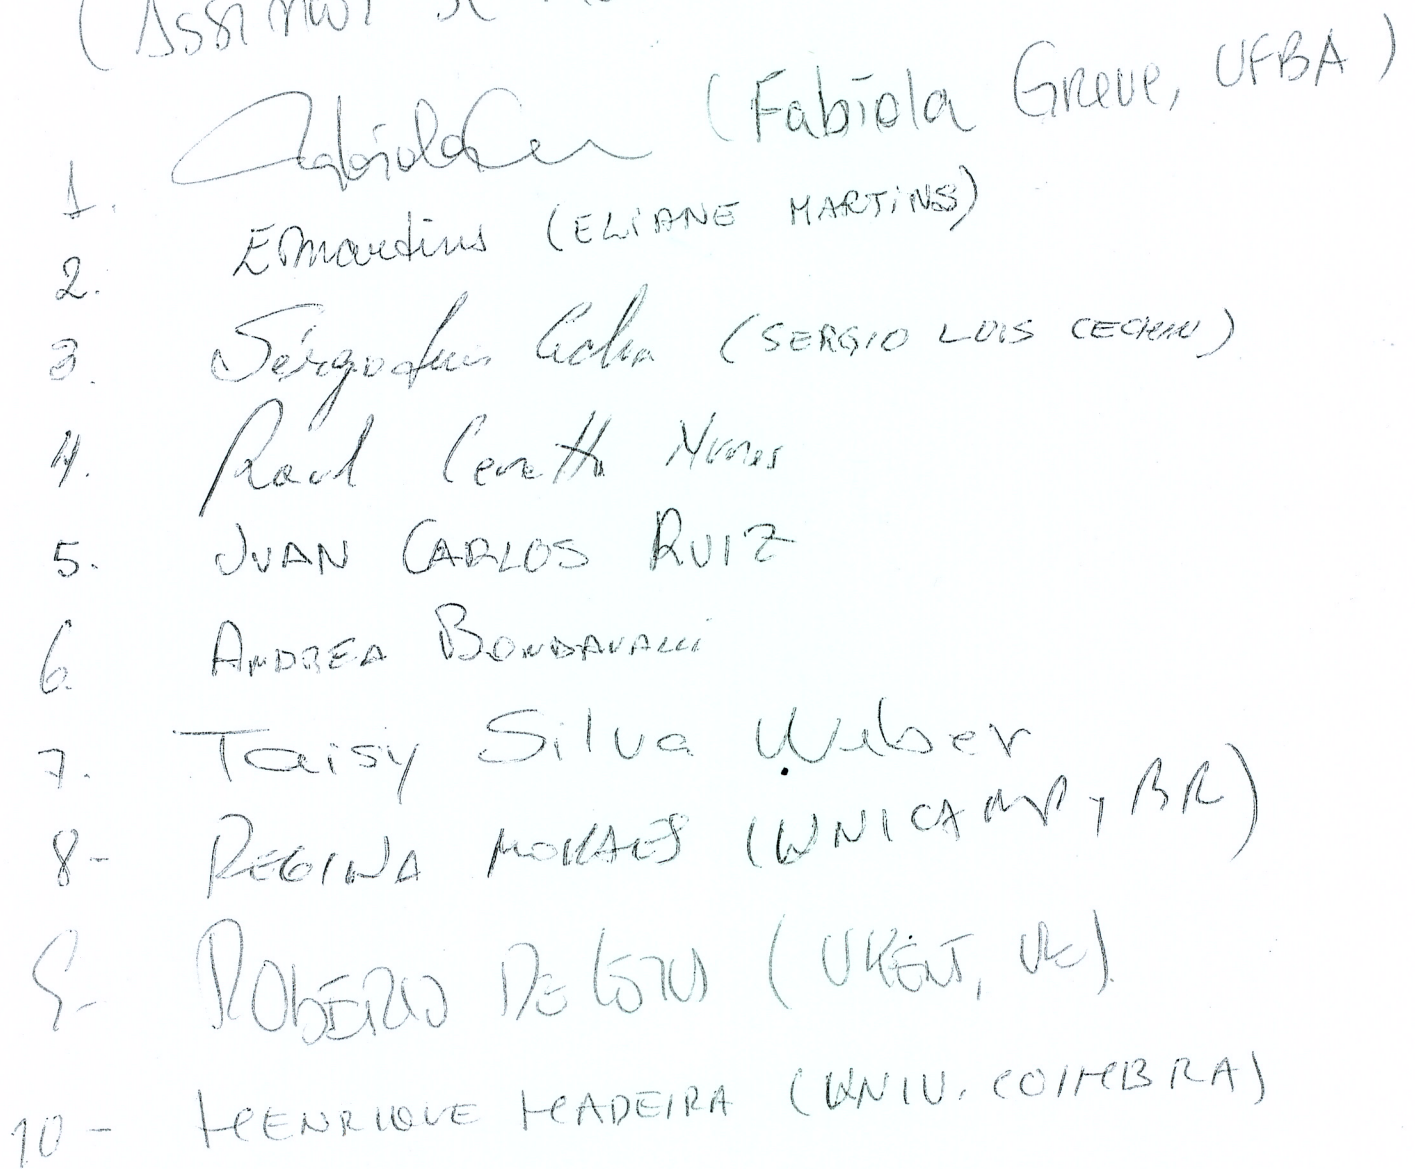 (Assinar
1. Fabiola Greve (Fabíola Greve, UFBA)
2. EMartins (ELIANE MARTINS)
3. Sérgio Luis Cechin (SERGIO LUIS CECHIN)
4. Raul Ceretta Nunes
5. JUAN CARLOS RUIZ
6. ANDREA BONDAVALLI
7. Taisy Silva Weber
8- REGINA MORAES (UNICAMP, BR)
9- ROBERTO DE LEMOS (UKENT, UK)
10- HENRIQUE MADEIRA (UNIV. COIMBRA)